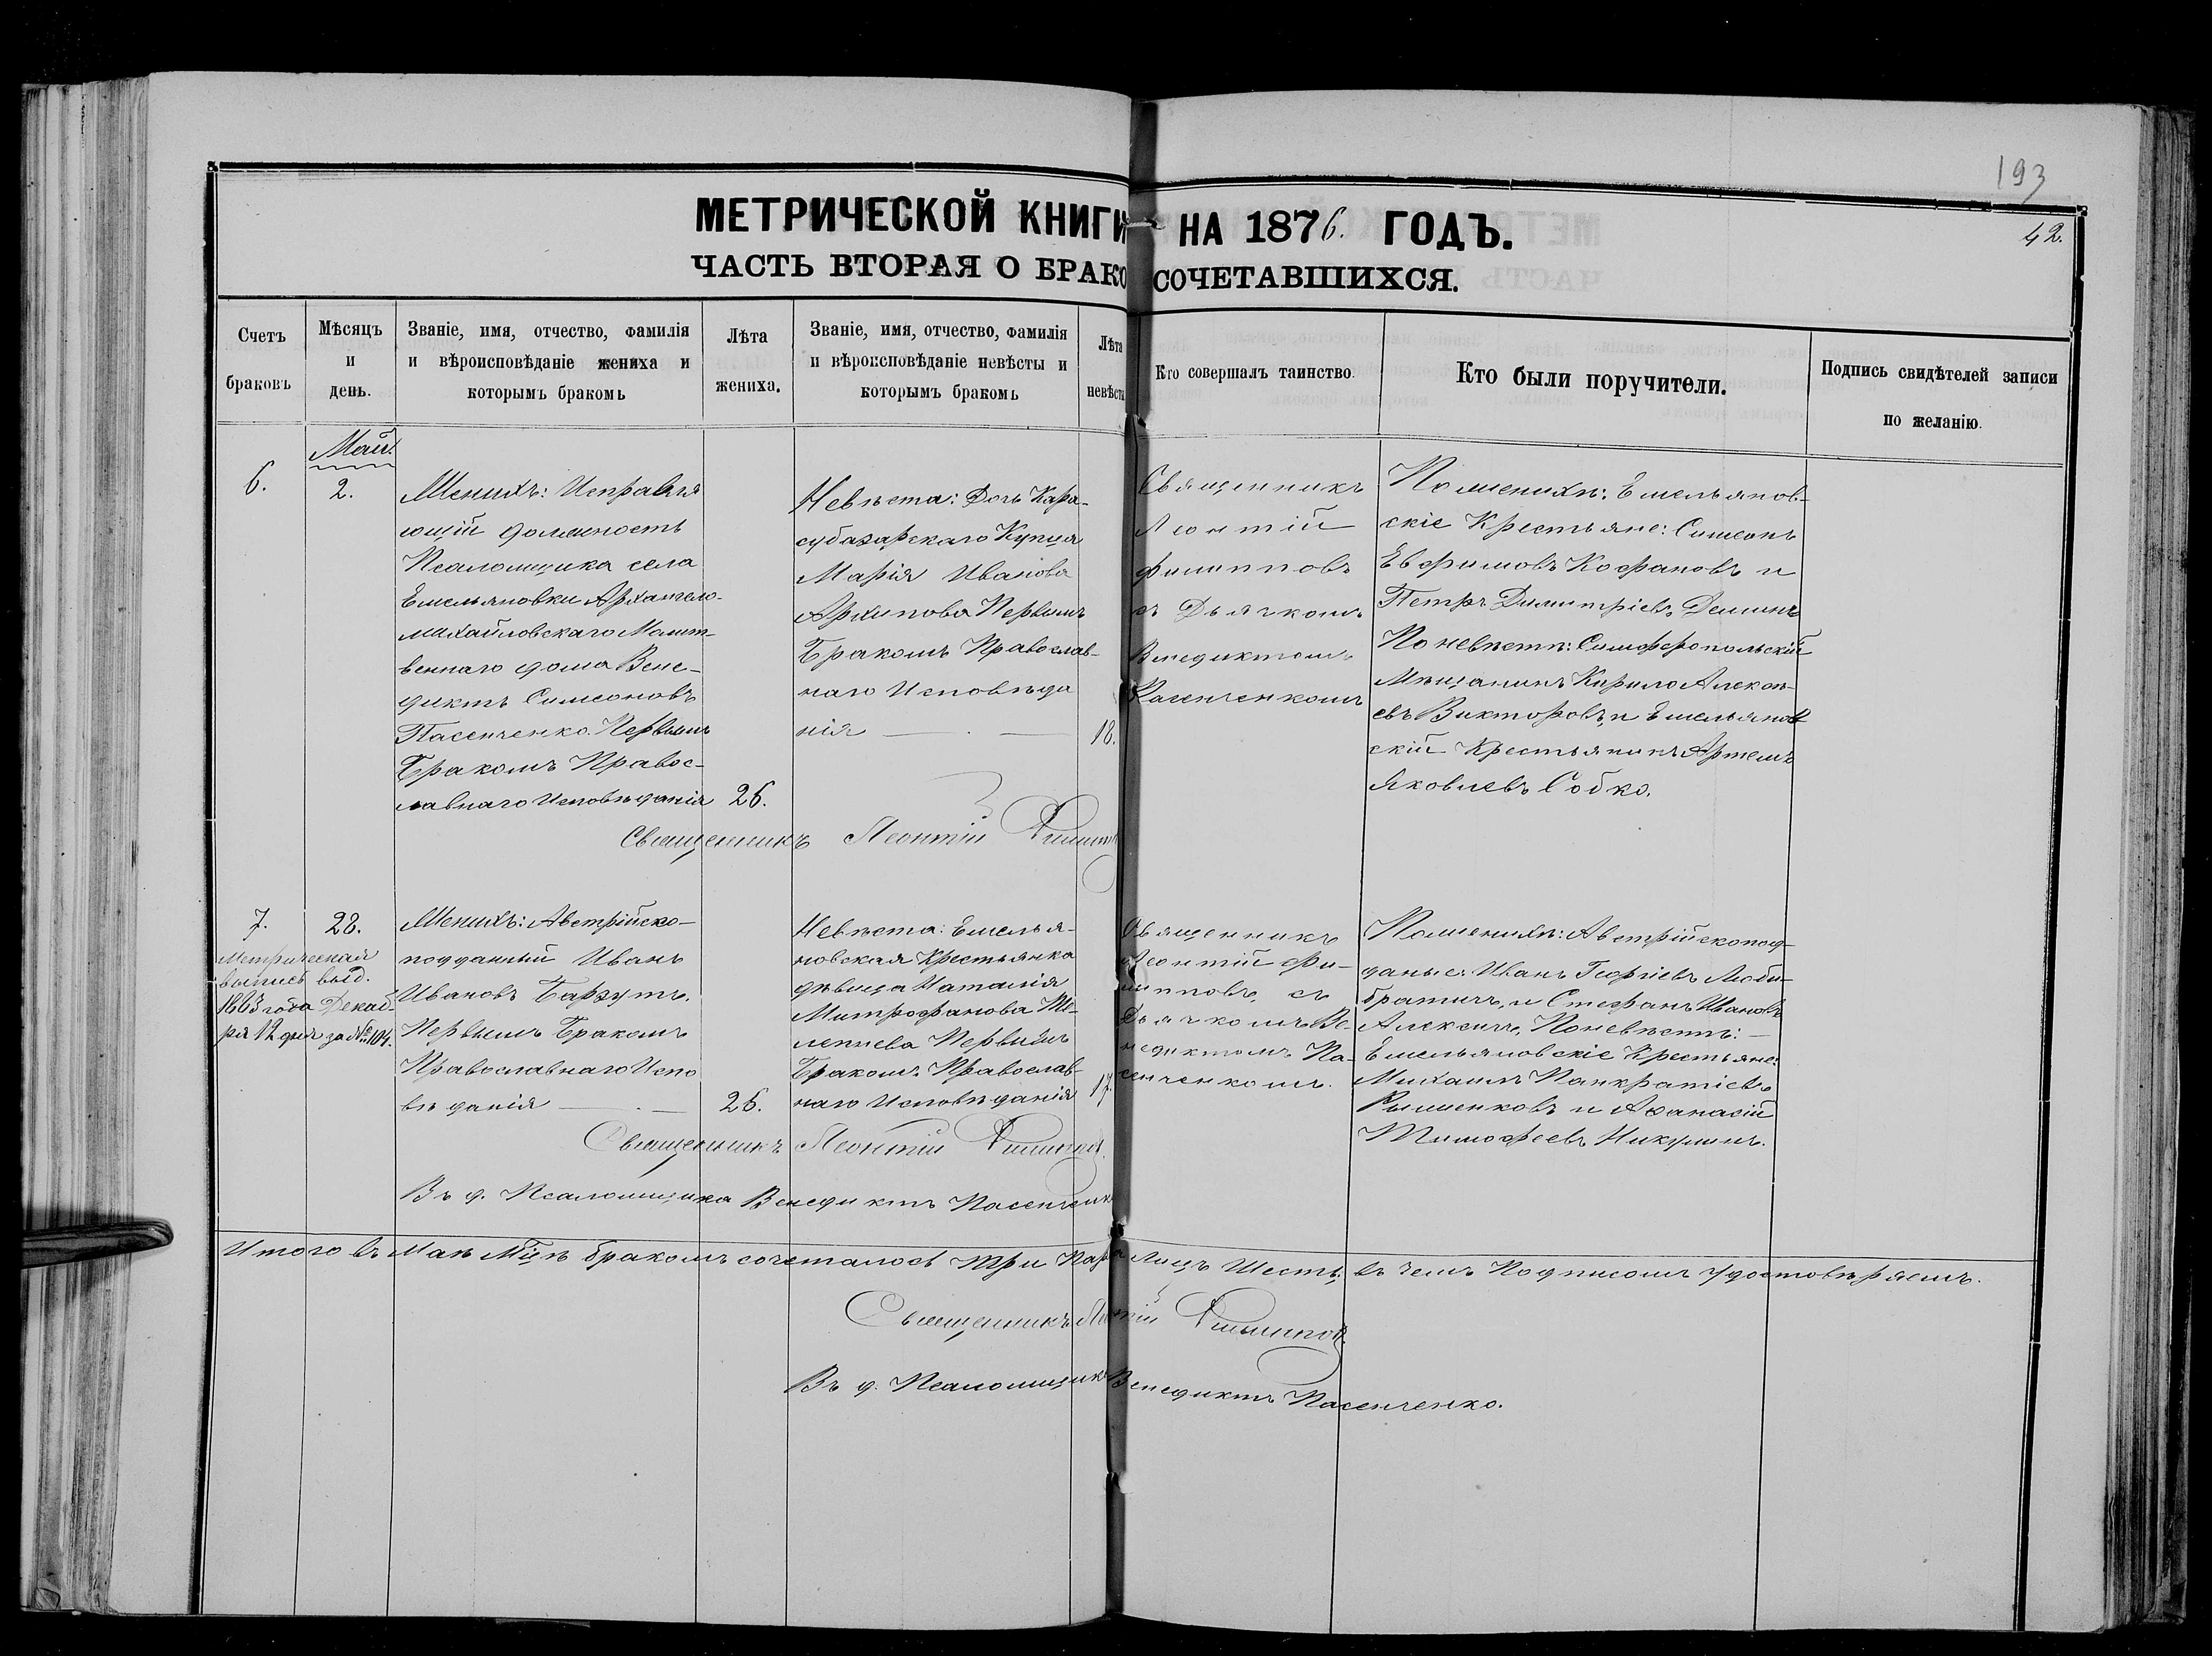 193
42.
МЕТРИЧЕСКОЙ КНИГИ НА 1876. ГОДЪ.
ЧАСТЬ ВТОРАЯ О БРАКОСОЧЕТАВШИХСЯ.
Счетъ
браковъ
Мѣсяцъ
и
день.
Званіе, имя, отчество, фамилія
и вѣроисповѣданіе жениха и
которымъ бракомъ
Лѣта
жениха.
Званіе, имя, отчество, фамилія
и вѣроисповѣданіе невѣсты и
которымъ бракомъ
Лѣта
невѣсты
Кто совершалъ таинство.
Кто были поручители.
Подпись свидѣтелей записи
по желанію.
Май.
6.
2.
Женихъ: Исправля
ющій должность
Псаломщика села
Емельяновки Архангело-
михайловскаго Молит-
веннаго дома Вене-
диктъ Симеоновъ
Пасенченко. Первымъ
Бракомъ Правос-
лавнаго Исповѣданія
26.
Невѣста: Дочь Кара-
субазарскаго Купца
Марія Иванова
Архипова Первымъ
Бракомъ Православ-
наго Исповѣда
нія
18.
Священникъ
Леонтій
Филипповъ
съ Дьячкомъ
Венедиктомъ
Пасенченкомъ
По женихѣ: Емельянов-
скіе Крестьяне: Симеонъ
Евфимовъ Кофановъ и
Петръ Димитріевъ Деминъ
По невѣстѣ: Симферопольскій
Мѣщанинъ Кирило Алексѣ-
евъ Викторовъ, и Емельянов
скій Крестьянинъ Артемъ
Яковлевъ Собко.
Священникъ Леонтій Филиппов
7.
28.
Метрическая
выпись выд.
года Декаб-
ря 12 дня за № 104.
Женихъ: Австрійско-
подданный Иванъ
Ивановъ Баргутъ.
Первымъ Бракомъ
Православнаго Испо
вѣданія
26.
Невѣста: Емелья-
новская Крестьянка
дѣвица Наталія
Митрофанова
Первымъ
Бракомъ Православ-
наго Исповѣданія
17.
Священникъ
Леонтій Фи-
липповъ, съ
Дьячкомъ Ве-
недиктомъ Па-
сенченкомъ.
По женихѣ: Австрійскопод-
даные: Иванъ Георгіевъ Люби-
братичъ, и Стефанъ Ивановъ
Алексичъ, По невѣстѣ: —
Емельяновскіе Крестьяне:
Михаилъ Панкратіевъ
и Афанасій
Тимофеевъ Никулинъ.
Священникъ Леонтій Филиппов.
Въ д. Псаломщика Венедиктъ Пасенченко
Итого въ Маѣ Мцѣ бракомъ сочеталось три Пары Лицъ Шесть; въ чемъ Подписомъ удостовѣряемъ.
Священникъ Леонтій Филиппов.
Въ д. Псаломщика Венедиктъ Пасенченко.